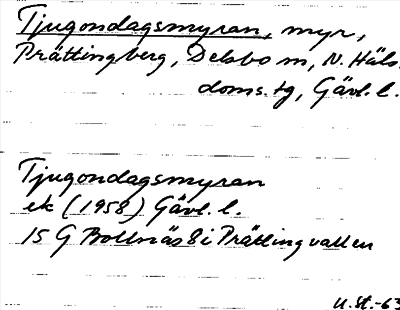 Tjugondagsmyran, myr,
Prättingberg, Delsbo sn, N. Häls.
doms.tg, Gävl. l.
Tjugondagsmyran
ek (1958) Gävl. l.
15 G Bollnäs 8 i Prättingvallen
U.St.-63